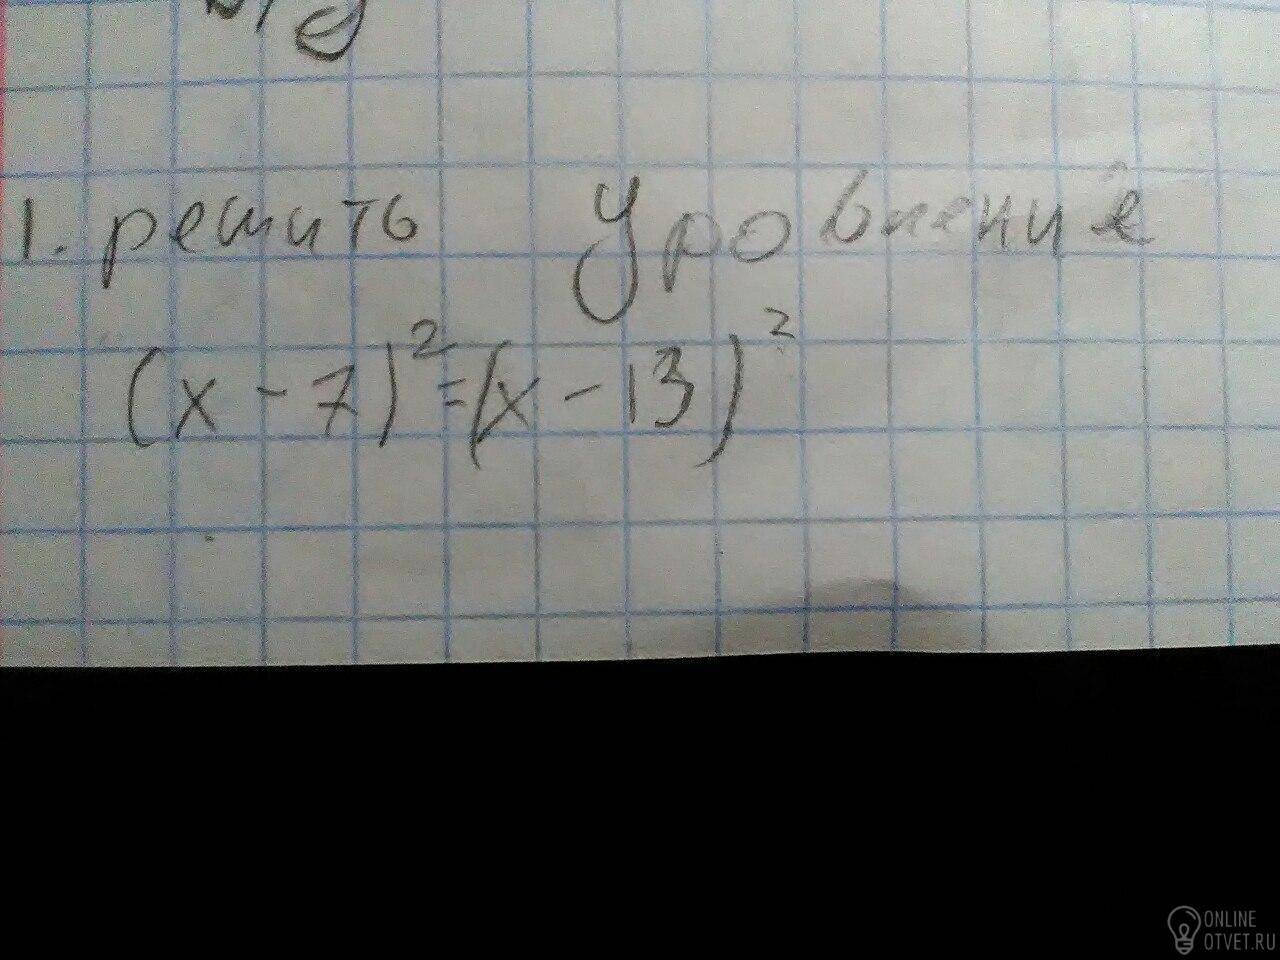 1. решить уровнение
(x - 7)² = (x - 13)²
ONLINE
OTVET.RU